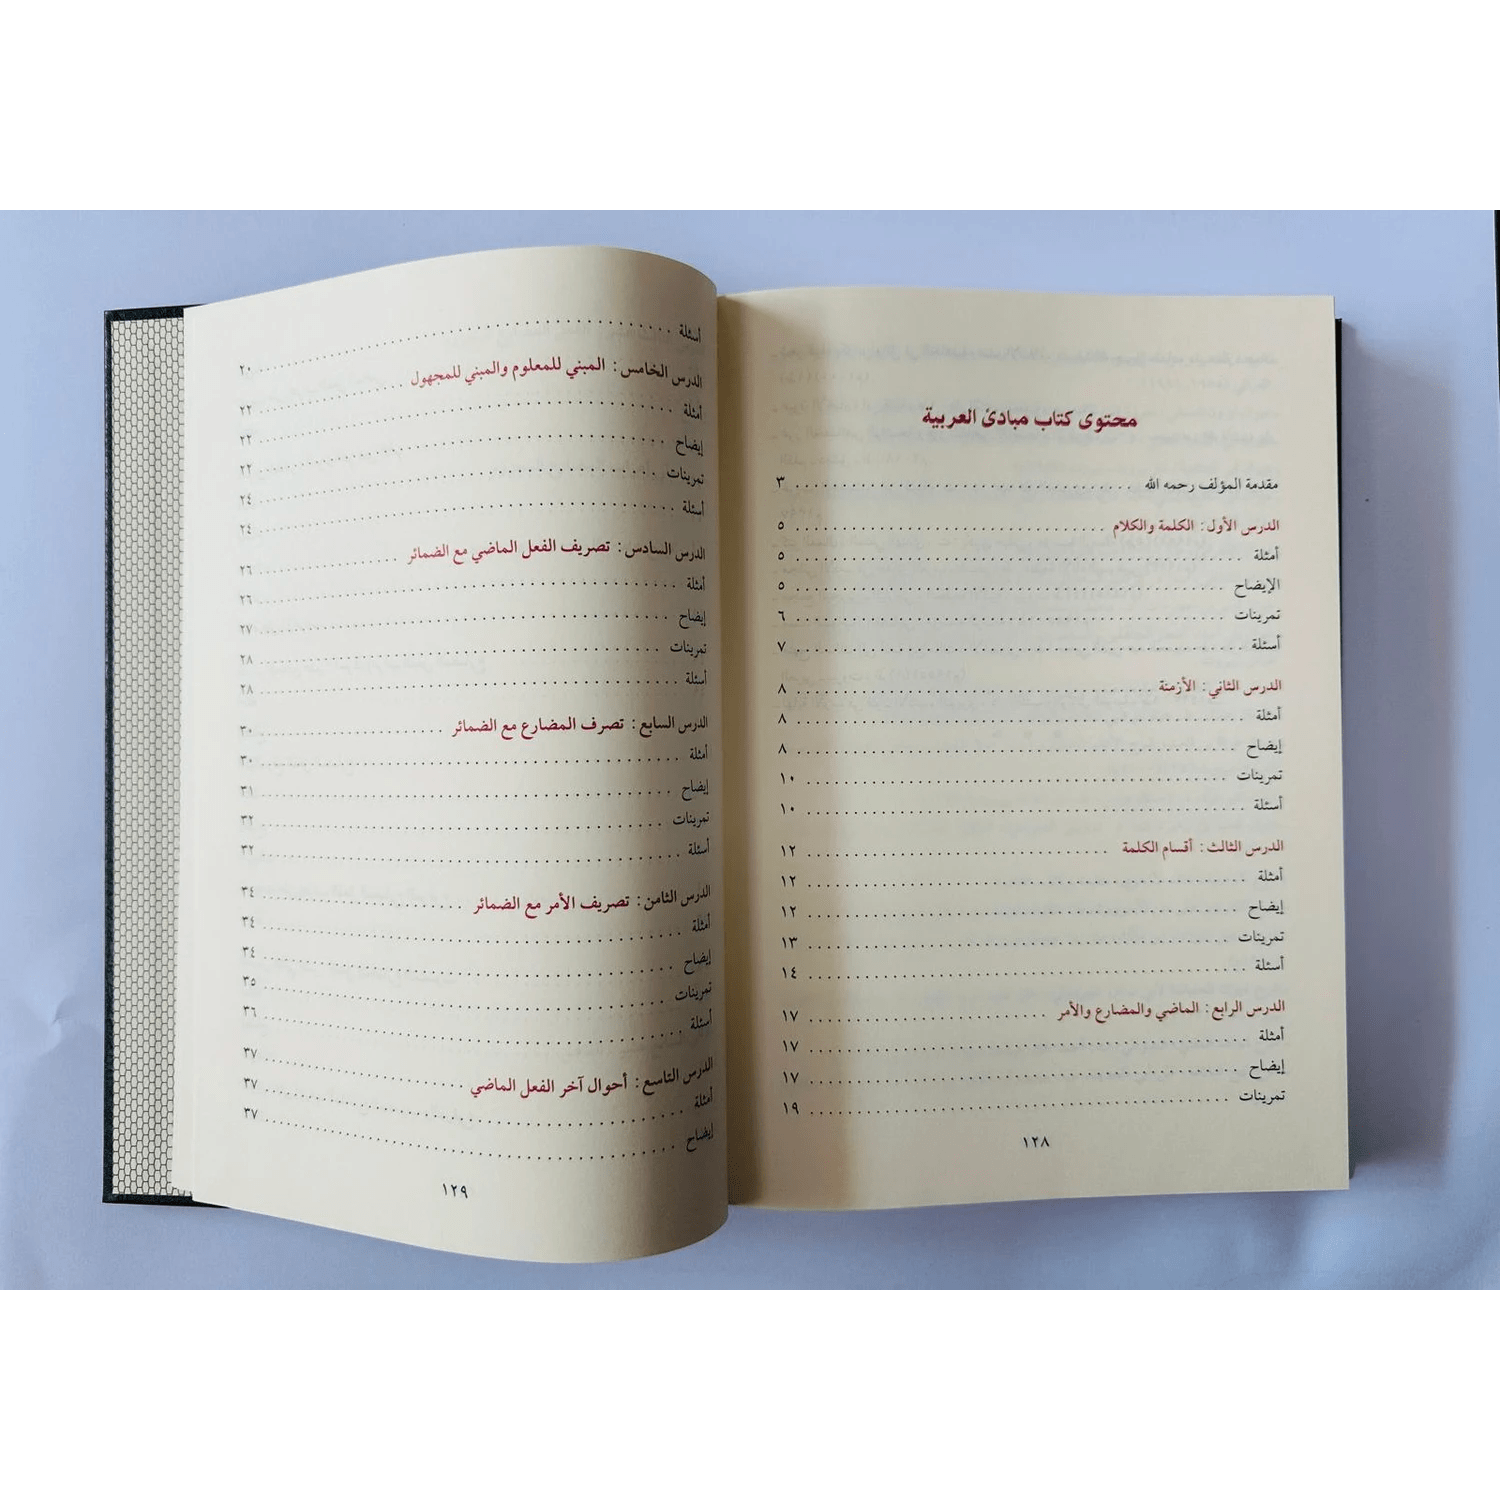 محتوى كتاب مبادئ العربية
مقدمة المؤلف رحمه الله ................ ٣
الدرس الأول: الكلمة والكلام ................ ٥
أمثلة ................ ٥
الإيضاح ................ ٥
تمرينات ................ ٦
أسئلة ................ ٧
الدرس الثاني: الأزمنة ................ ٨
أمثلة ................ ٨
إيضاح ................ ٨
تمرينات ................ ١٠
أسئلة ................ ١٠
الدرس الثالث: أقسام الكلمة ................ ١٢
أمثلة ................ ١٢
إيضاح ................ ١٢
تمرينات ................ ١٣
أسئلة ................ ١٤
الدرس الرابع: الماضي والمضارع والأمر ................ ١٧
أمثلة ................ ١٧
إيضاح ................ ١٧
تمرينات ................ ١٩
١٢٨
أسئلة ................ ٢٠
الدرس الخامس: المبني للمعلوم والمبني للمجهول ................ ٢٢
أمثلة ................ ٢٢
إيضاح ................ ٢٢
تمرينات ................ ٢٤
أسئلة ................ ٢٤
الدرس السادس: تصريف الفعل الماضي مع الضمائر ................ ٢٦
أمثلة ................ ٢٦
إيضاح ................ ٢٧
تمرينات ................ ٢٨
أسئلة ................ ٢٨
الدرس السابع: تصرف المضارع مع الضمائر ................ ٣٠
أمثلة ................ ٣٠
إيضاح ................ ٣١
تمرينات ................ ٣٢
أسئلة ................ ٣٢
الدرس الثامن: تصريف الأمر مع الضمائر ................ ٣٤
أمثلة ................ ٣٤
إيضاح ................ ٣٤
تمرينات ................ ٣٥
أسئلة ................ ٣٦
الدرس التاسع: أحوال آخر الفعل الماضي ................ ٣٧
أمثلة ................ ٣٧
إيضاح ................ ٣٧
١٢٩